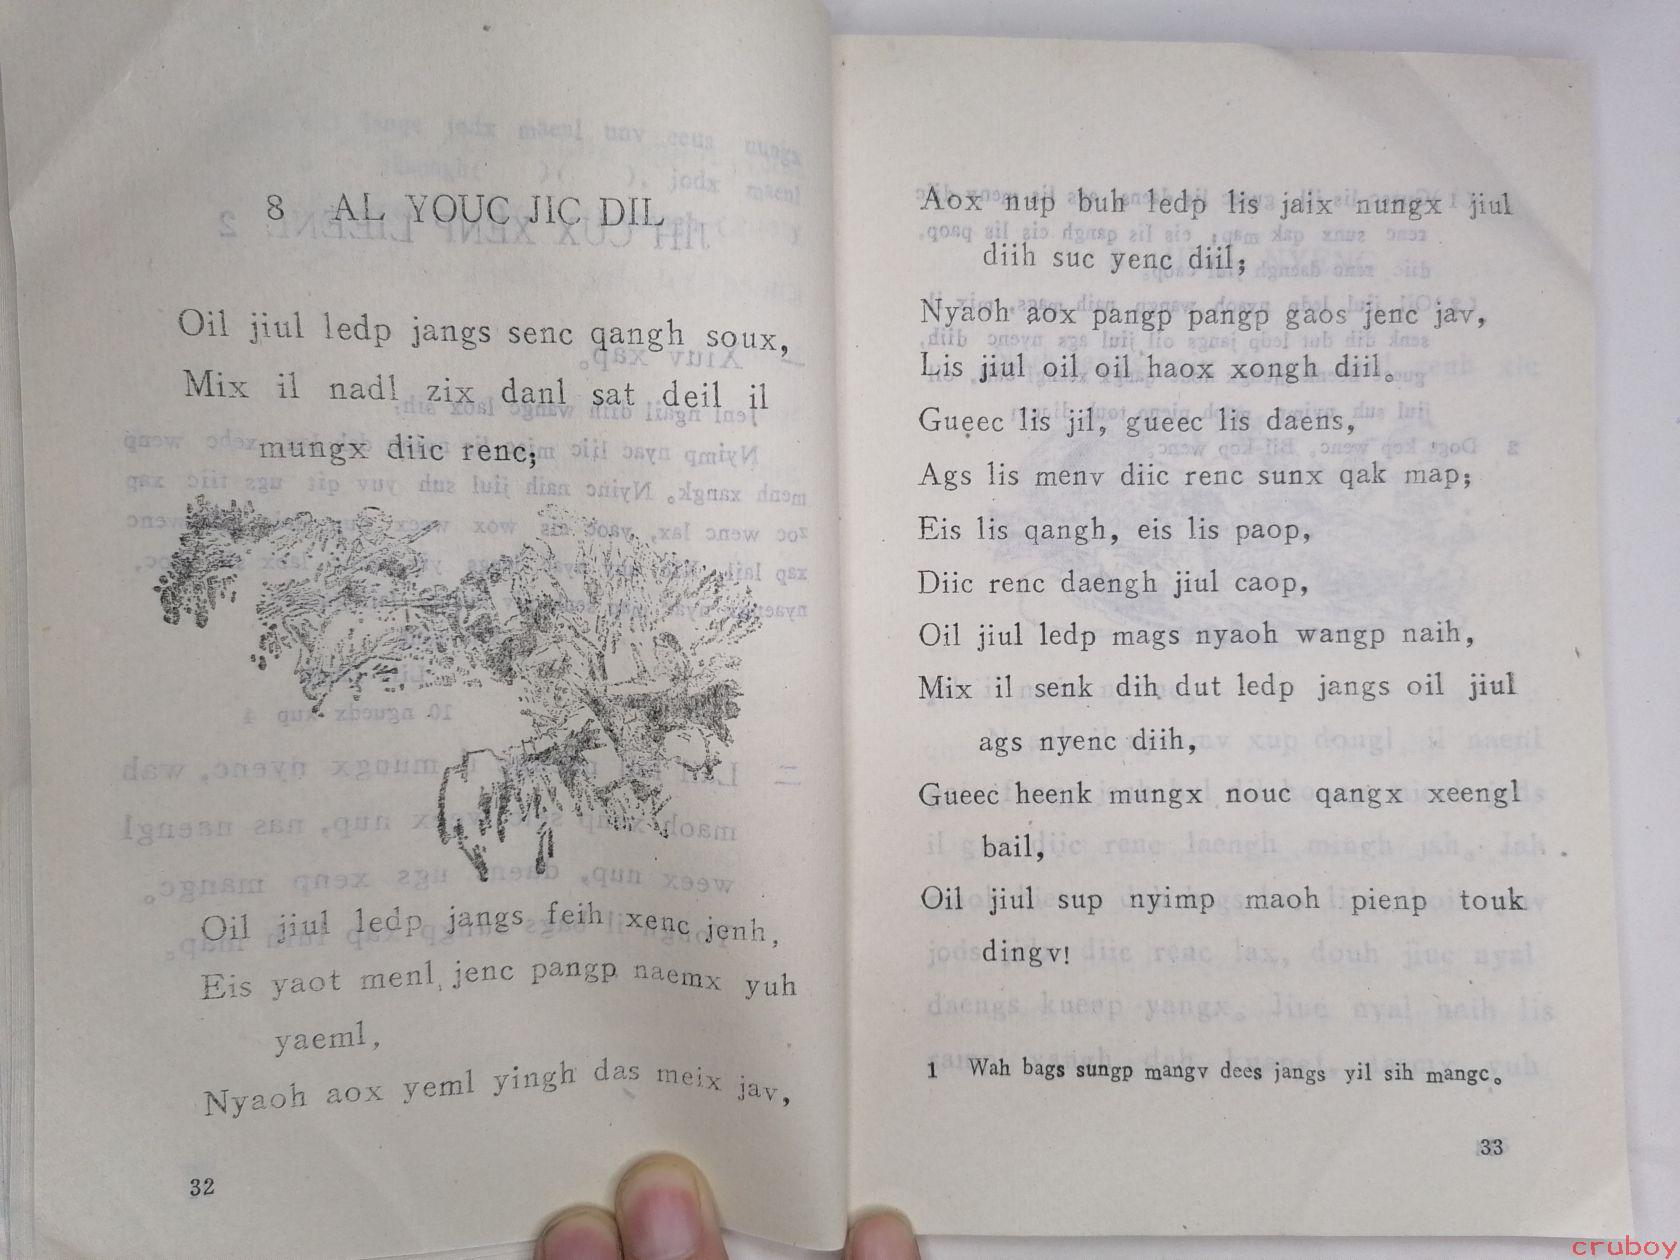 8 AL YOUC JIC DIL
Oil jiul ledp jangs senc qangh soux,
Mix il nadl zix danl sat deil il
mungx diic renc;
Oil jiul ledp jangs feih xenc jenh,
Eis yaot menl jenc pangp naemx yuh
yaeml,
Nyaoh aox yeml yingh das meix jav,
32
Aox nup buh ledp lis jaix nungx jiul
diih suc yenc diil;
Nyaoh aox pangp pangp gaos jenc jav,
Lis jiul oil oil haox xongh diil。
Gueec lis jil, gueec lis daens,
Ags lis menv diic renc sunx qak map;
Eis lis qangh, eis lis paop,
Diic renc daengh jiul caop,
Oil jiul ledp mags nyaoh wangp naih,
Mix il senk dih dut ledp jangs oil jiul
ags nyenc diih,
Gueec heenk mungx nouc qangx xeengl
bail,
Oil jiul sup nyimp maoh pienp touk
dingv!
1 Wah bags sungp mangv dees jangs yil sih mangc。
33
cruboy